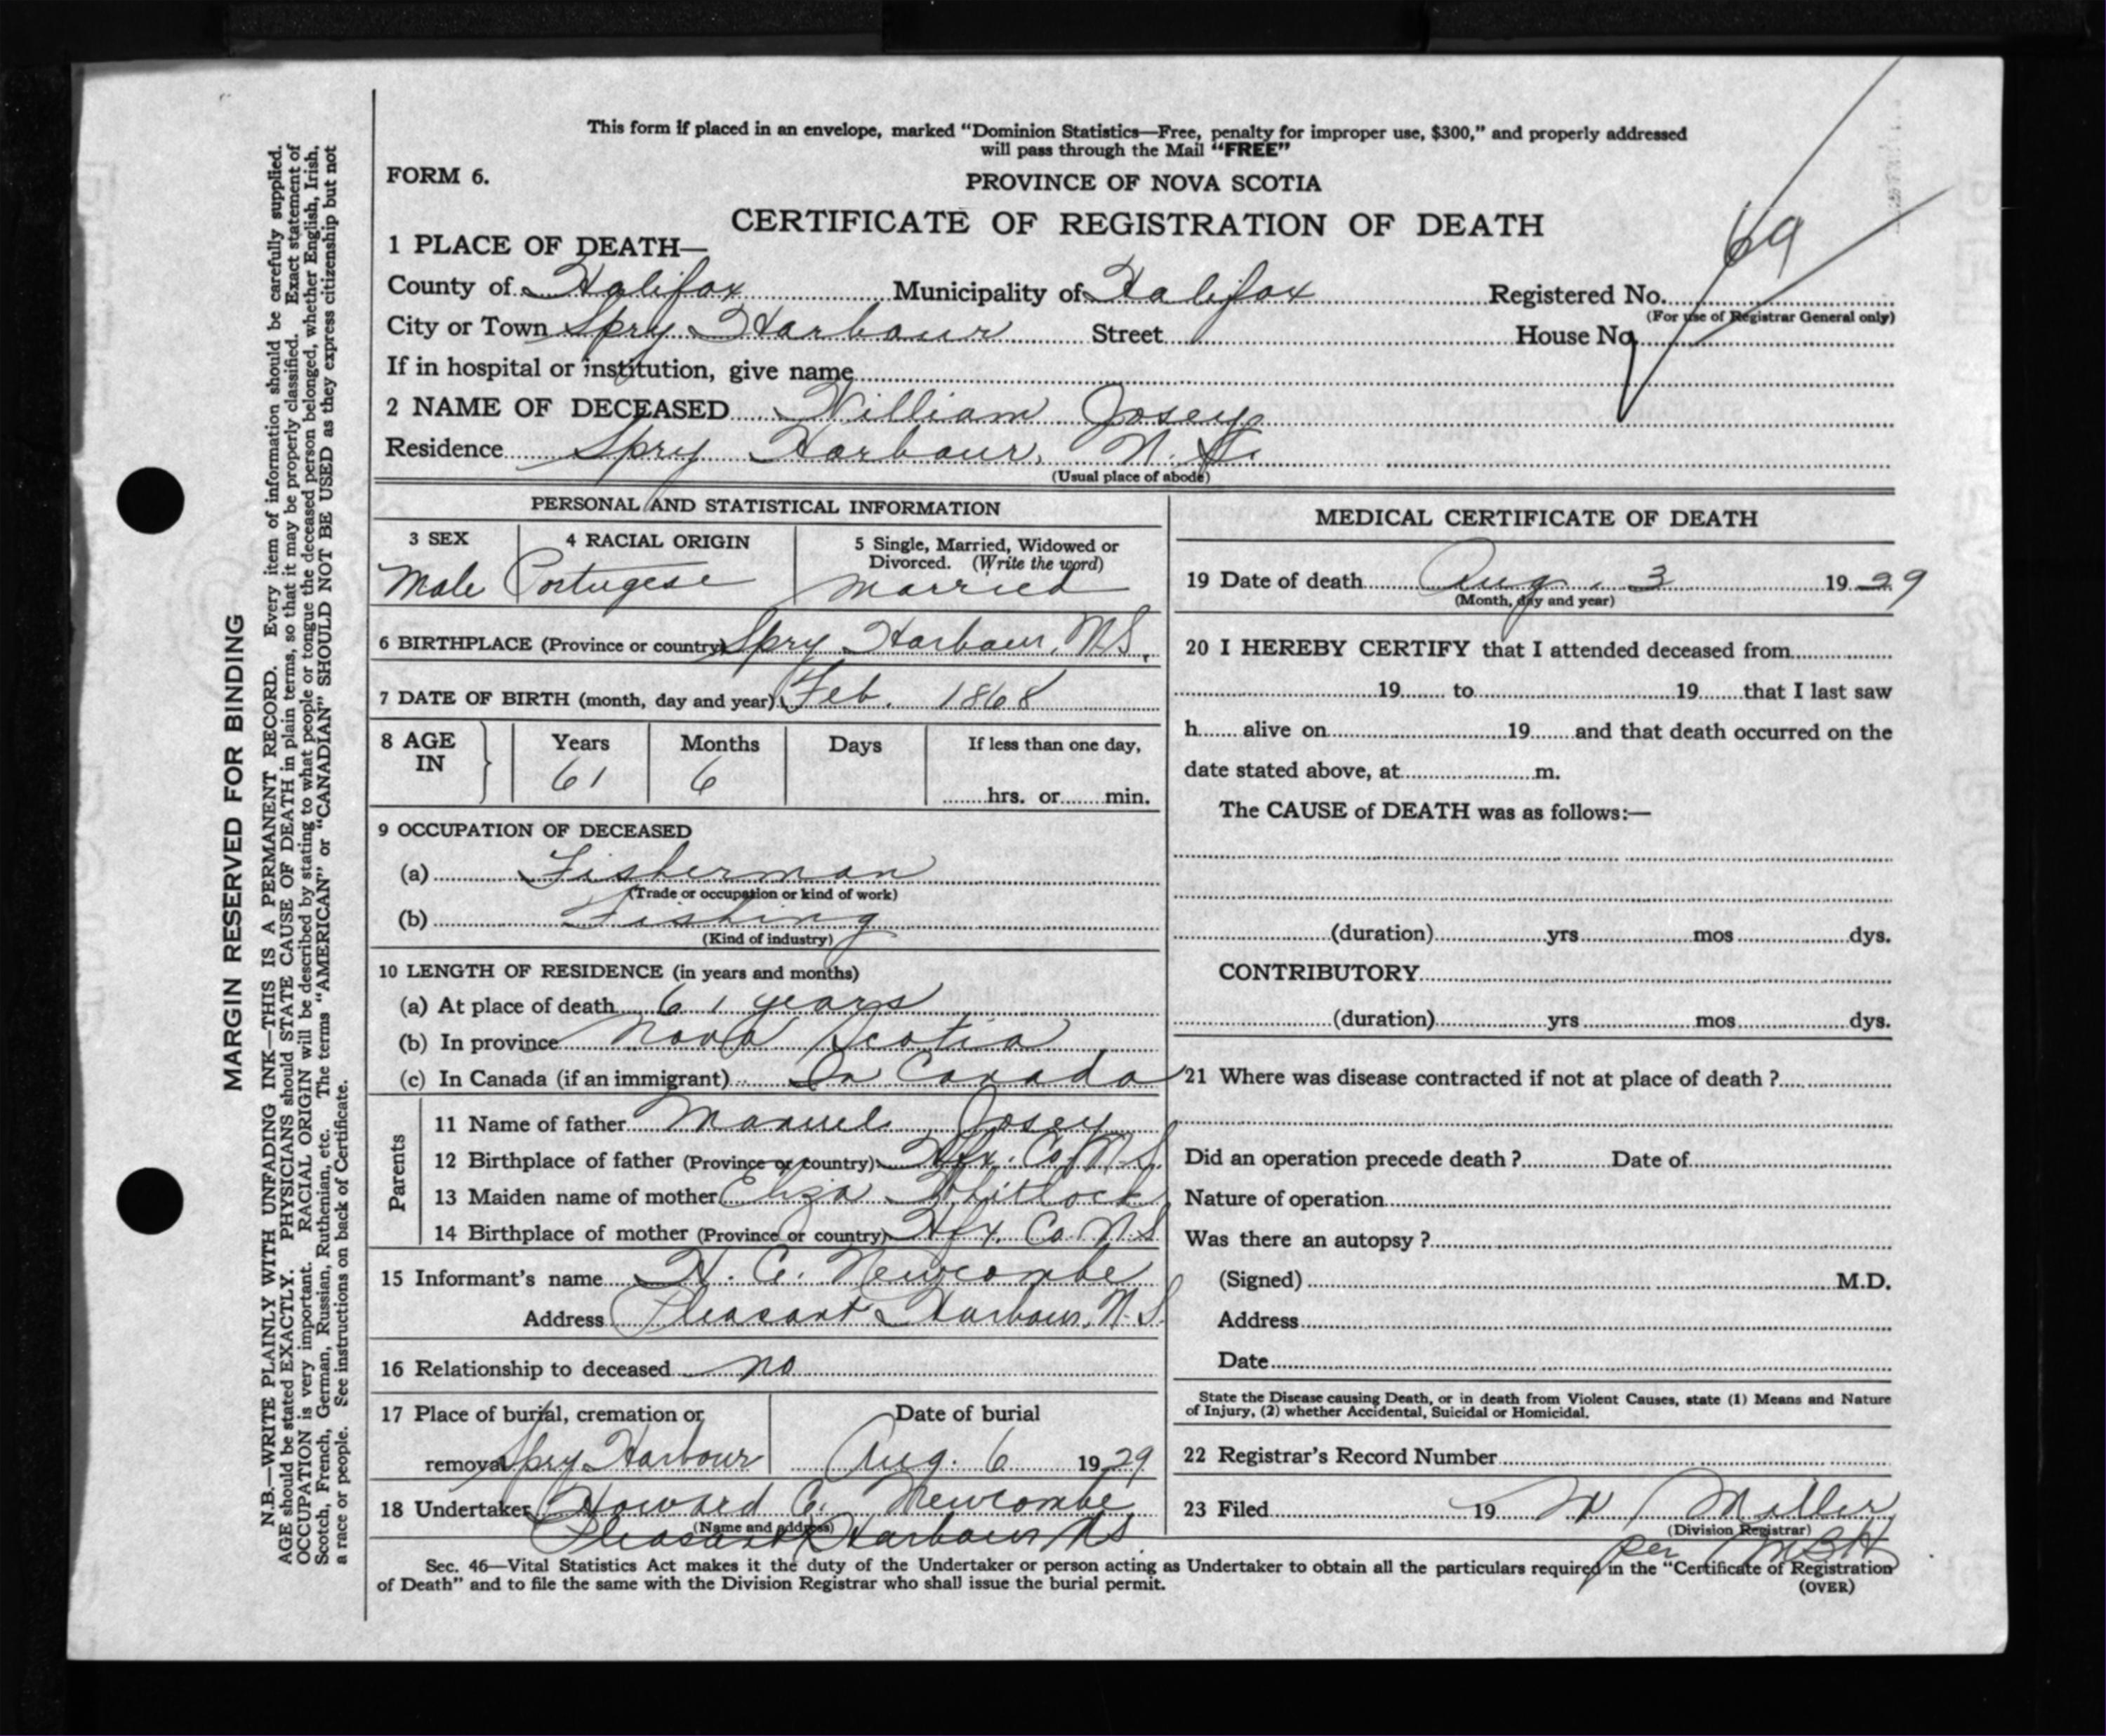 This form if placed in an envelope, marked “Dominion Statistics—Free, penalty for improper use, $300,” and properly addressed
will pass through the Mail “FREE”
FORM 6.
PROVINCE OF NOVA SCOTIA
CERTIFICATE OF REGISTRATION OF DEATH
69
1 PLACE OF DEATH—
County of Halifax Municipality of Halifax Registered No.
(For use of Registrar General only)
City or Town Spry Harbour Street House No.
If in hospital or institution, give name
2 NAME OF DECEASED William Josey
Residence Spry Harbour, N. S.
(Usual place of abode)
PERSONAL AND STATISTICAL INFORMATION
3 SEX 4 RACIAL ORIGIN 5 Single, Married, Widowed or
Divorced. (Write the word)
Male Portugese Married
6 BIRTHPLACE (Province or country) Spry Harbour, N.S.
7 DATE OF BIRTH (month, day and year) Feb. 1868
8 AGE IN Years Months Days If less than one day,
61 6 hrs. or min.
9 OCCUPATION OF DECEASED
(a) Fisherman
(Trade or occupation or kind of work)
(b) Fishing
(Kind of industry)
10 LENGTH OF RESIDENCE (in years and months)
(a) At place of death 61 years
(b) In province Nova Scotia
(c) In Canada (if an immigrant) In Canada
Parents
11 Name of father Manuel Josey
12 Birthplace of father (Province or country) Hfx. Co. N.S.
13 Maiden name of mother Eliza Whitlock
14 Birthplace of mother (Province or country) Hfx. Co. N.S
15 Informant's name H. C. Newcombe
Address Pleasant Harbour, N.S.
16 Relationship to deceased no
17 Place of burial, cremation or Date of burial
removal Spry Harbour Aug. 6 1929
18 Undertaker Howard C. Newcombe
(Name and address)
Pleasant Harbour NS
MEDICAL CERTIFICATE OF DEATH
19 Date of death Aug. 3 1929
(Month, day and year)
20 I HEREBY CERTIFY that I attended deceased from
19 to 19 that I last saw
h alive on 19 and that death occurred on the
date stated above, at m.
The CAUSE of DEATH was as follows:—
(duration) yrs mos dys.
CONTRIBUTORY
(duration) yrs mos dys.
21 Where was disease contracted if not at place of death ?
Did an operation precede death ? Date of
Nature of operation
Was there an autopsy ?
(Signed) M.D.
Address
Date
State the Disease causing Death, or in death from Violent Causes, state (1) Means and Nature
of Injury, (2) whether Accidental, Suicidal or Homicidal.
22 Registrar's Record Number
23 Filed 19 W Miller
(Division Registrar)
per MBH
Sec. 46—Vital Statistics Act makes it the duty of the Undertaker or person acting as Undertaker to obtain all the particulars required in the “Certificate of Registration
of Death” and to file the same with the Division Registrar who shall issue the burial permit.
(OVER)
MARGIN RESERVED FOR BINDING
N.B.—WRITE PLAINLY WITH UNFADING INK—THIS IS A PERMANENT RECORD. Every item of information should be carefully supplied.
AGE should be stated EXACTLY. PHYSICIANS should STATE CAUSE OF DEATH in plain terms, so that it may be properly classified. Exact statement of
OCCUPATION is very important. RACIAL ORIGIN will be described by stating to what people or tongue the deceased person belonged, whether English, Irish,
Scotch, French, German, Russian, Ruthenian, etc. The terms “AMERICAN” or “CANADIAN” SHOULD NOT BE USED as they express citizenship but not
a race or people. See instructions on back of Certificate.